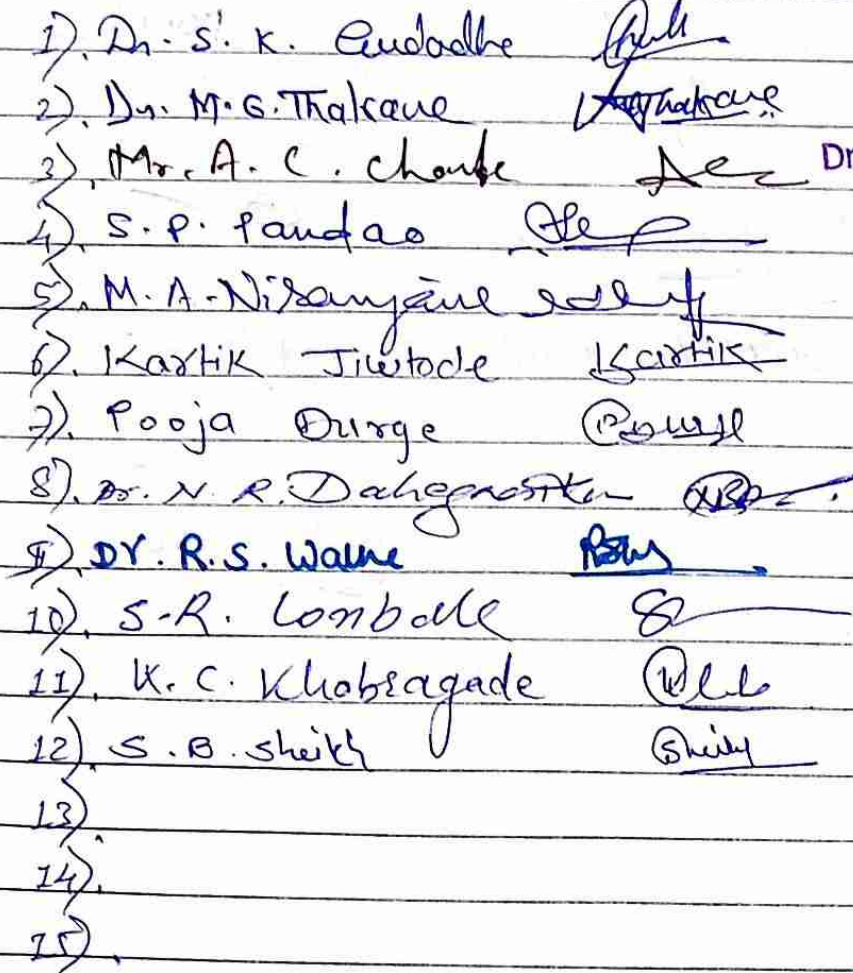 1). Dr. S. K. Gudadhe
2). Dr. M. G. Thakare Thakare
3). Mr. A. C. Dr
4). S. P. Pandao
5). M. A. Niranjane
6). Kartik Jiwtode Kartik
7). Pooja Durge
8). Dr. N. R. Dahegaonkar
9). Dr. R. S.
10). S. R. Lonballe
11). K. C. Khobragade
12). S. B. Sheikh
13).
14).
15).